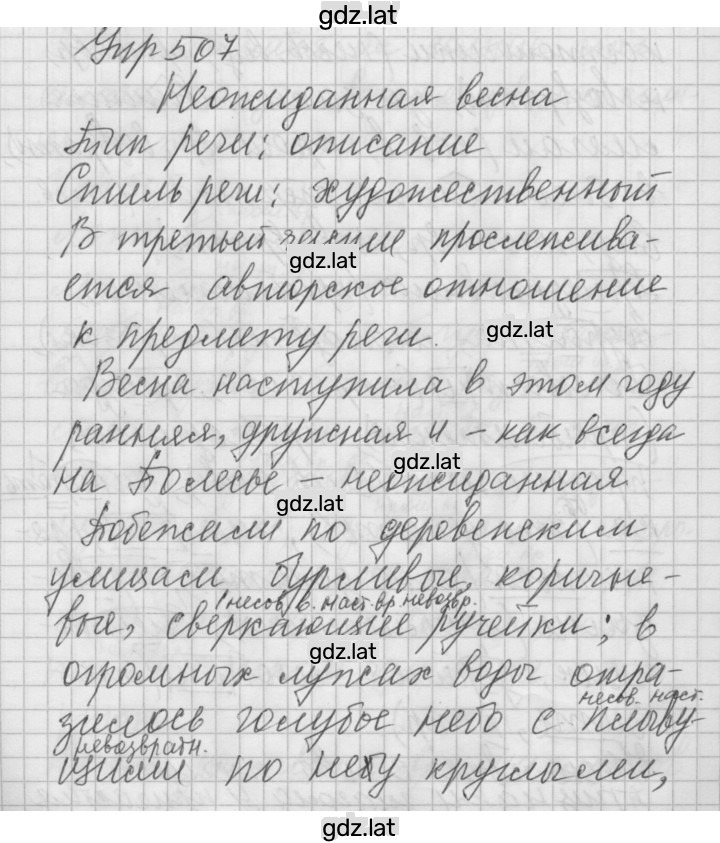 gdz.lat
Упр 507
Неожиданная весна
Тип речи: описание
Стиль речи: художественный
В третьей прослежива-
gdz.lat
ется авторское отношение
к предмету речи.
gdz.lat
Весна наступила в этом году
ранняя, дружная и – как всегда
gdz.lat
на Полесье – неожиданная.
gdz.lat
Побежали по деревенским
улицам бурливые, коричне-
1 несов. в. наст. вр. невозвр.
вые, сверкающие ручейки; в
gdz.lat
огромных лужах воды отра-
несов. наст.
зилось голубое небо с плыву-
невозвратн.
щими по нему круглыми,
gdz.lat